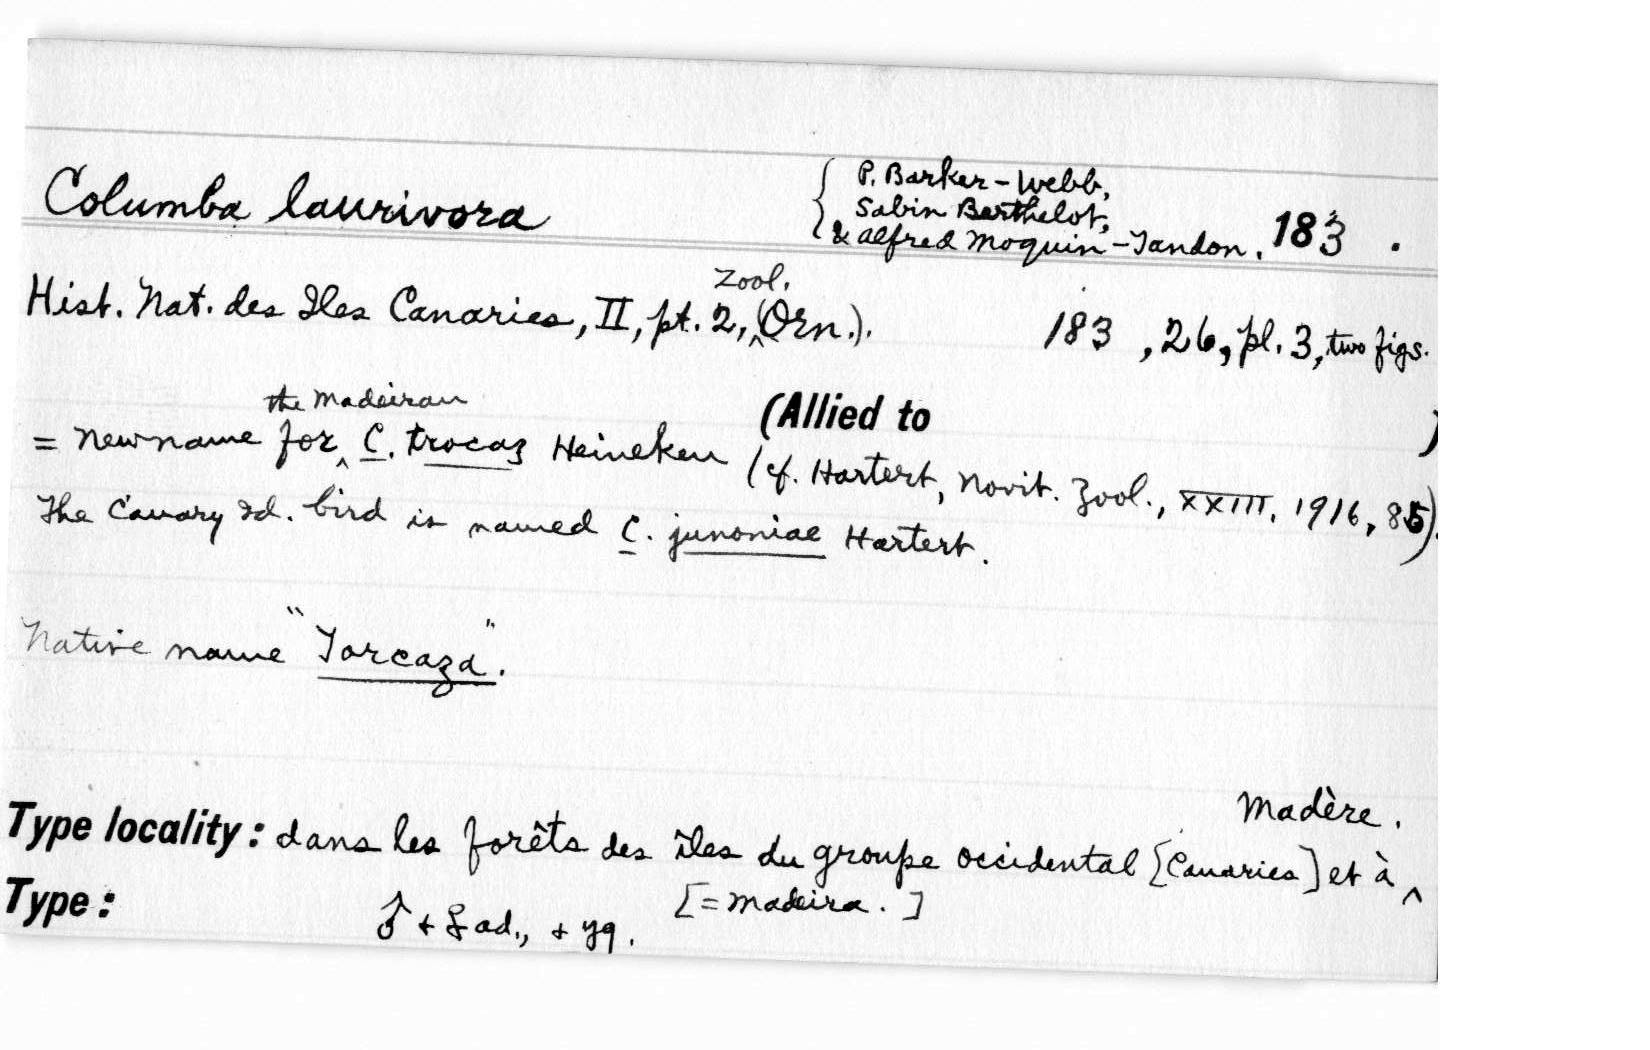 Columba laurivora
{ P. Barker-Webb,
Sabin Berthelot,
& Alfred Moquin-Tandon. 183 .
Hist. Nat. des Iles Canaries, II, pt. 2, Zool. (Orn.). 183 , 26, pl. 3, two figs.
(Allied to )
= New name for the Madeiran C. trocaz Heineken (cf. Hartert, Novit. Zool., XXIII, 1916, 85).
The Canary Id. bird is named C. junoniae Hartert.
Native name "Torcaza".
Type locality: dans les forêts des îles du groupe occidental [Canaries] et à Madère.
[= Madeira.]
Type: ♂ + ♀ ad., + yg.